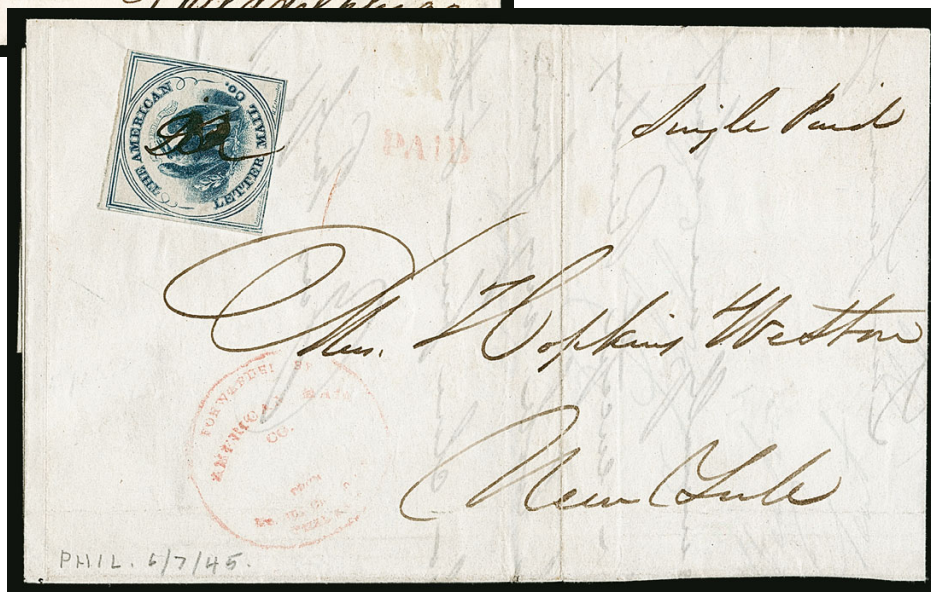 THE AMERICAN
LETTER MAIL CO.
PAID
Single Paid
Mrs. Hopkins Weston
New York
FORWARDED
AMERICAN MAIL
CO.
FROM
PHIL. 6/7/45.